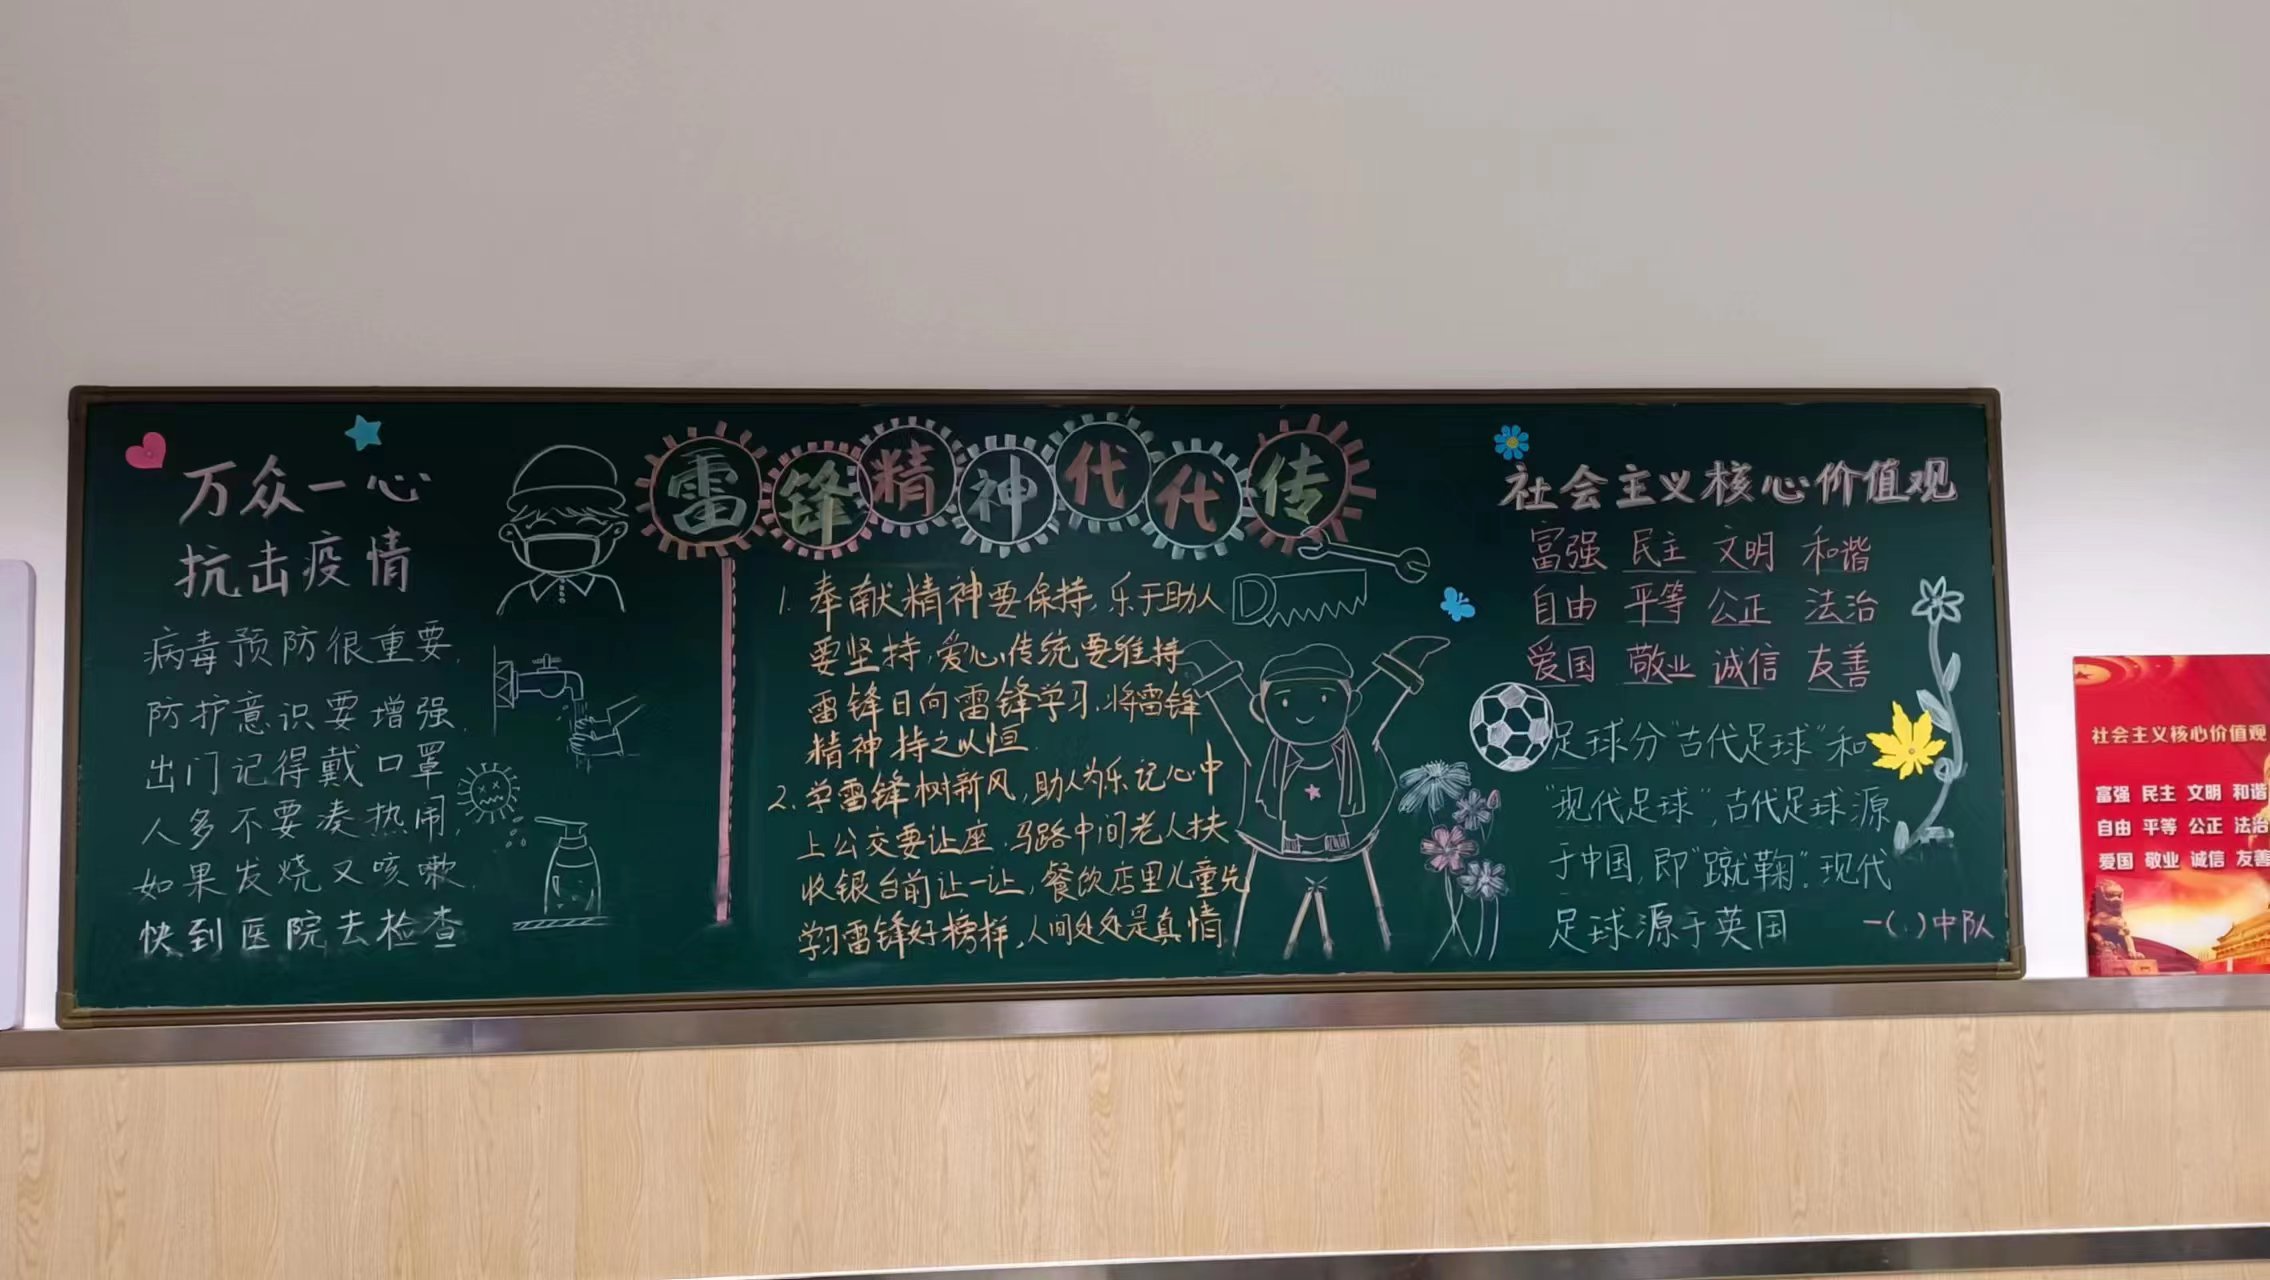 万众一心
抗击疫情
病毒预防很重要,
防护意识要增强,
出门记得戴口罩
人多不要凑热闹,
如果发烧又咳嗽,
快到医院去检查
雷锋精神代代传
1. 奉献精神要保持,乐于助人
要坚持,爱心传统要维持
雷锋日向雷锋学习,将雷锋
精神持之以恒.
2. 学雷锋树新风,助人为乐记心中
上公交要让座,马路中间老人扶
收银台前让一让,餐饮店里儿童先
学习雷锋好榜样,人间处处是真情
社会主义核心价值观
富强 民主 文明 和谐
自由 平等 公正 法治
爱国 敬业 诚信 友善
足球分"古代足球"和
"现代足球",古代足球源
于中国,即"蹴鞠".现代
足球源于英国
一(.)中队
社会主义核心价值观
富强 民主 文明 和谐
自由 平等 公正 法治
爱国 敬业 诚信 友善